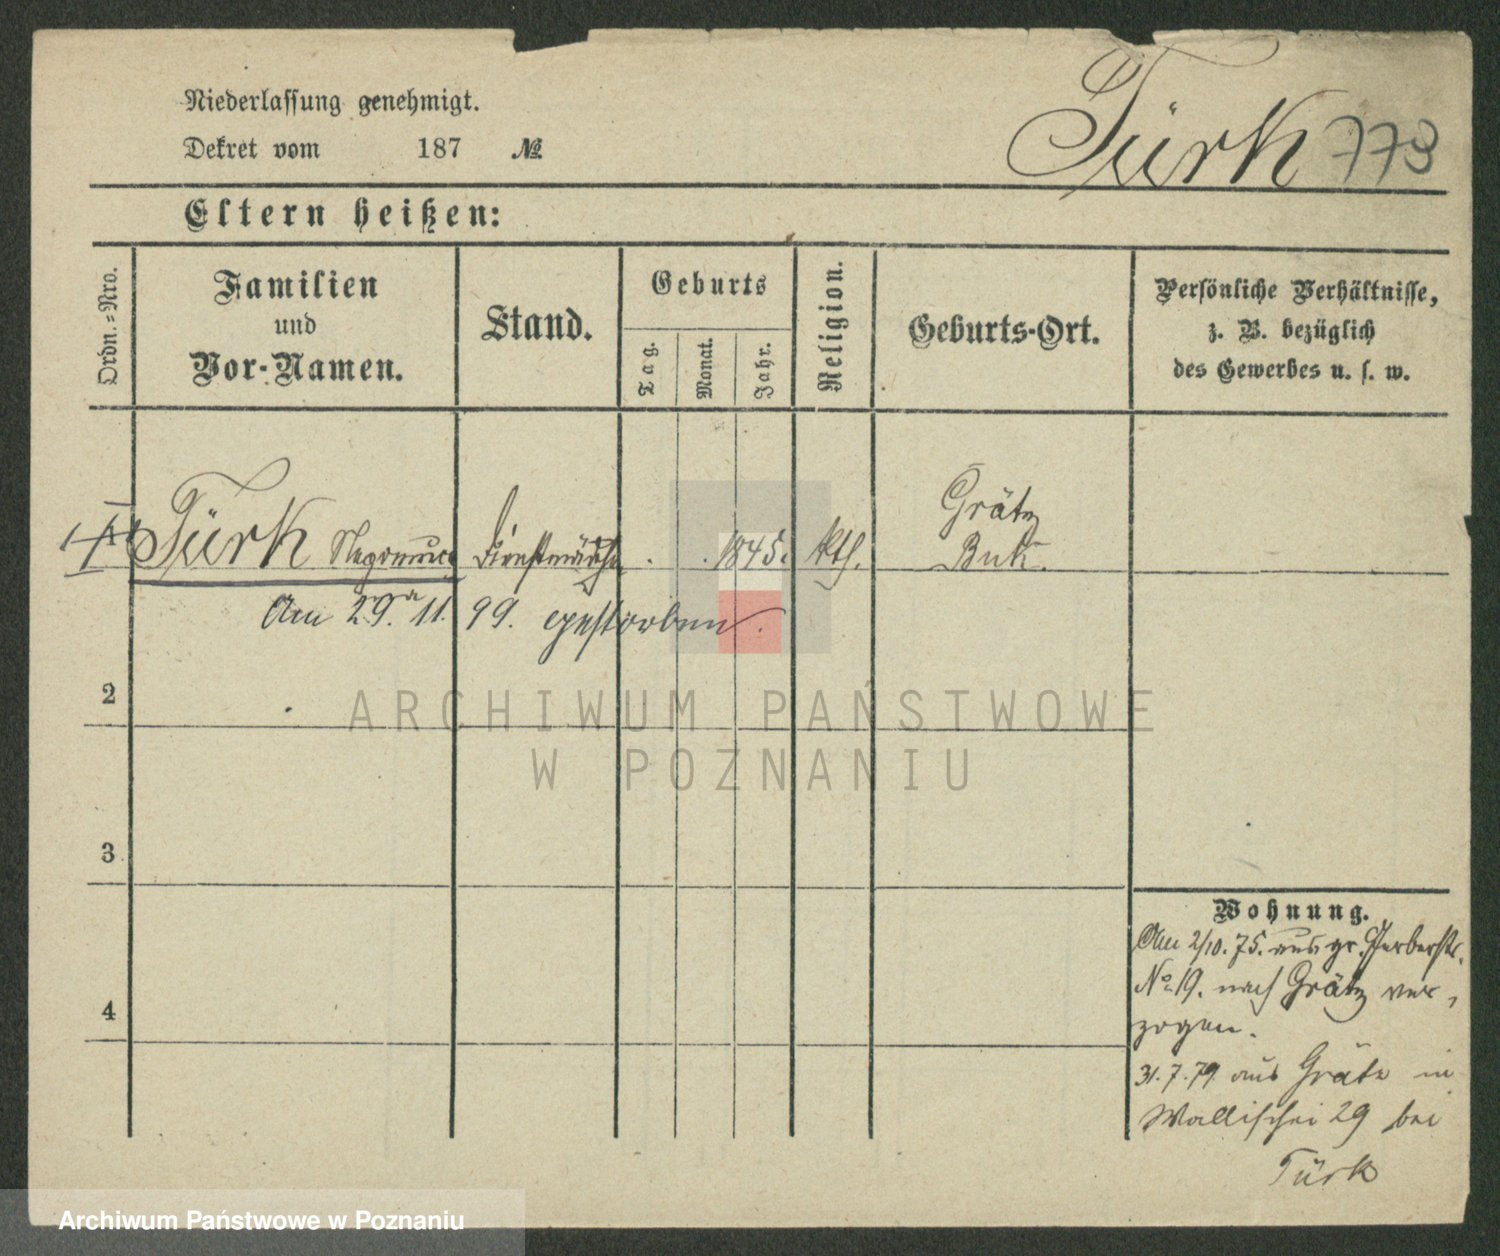 Niederlassung genehmigt.
Dekret vom 187 №
Türk 773
Eltern heißen:
Ordn.-Nro.
Familien
und
Vor-Namen.
Stand.
Geburts
Tag.
Monat.
Jahr.
Religion.
Geburts-Ort.
Persönliche Verhältnisse,
z. B. bezüglich
des Gewerbes u. s. w.
Grätz
1 Türk Dienstmädchen 1845. kth. Buk.
Am 29. 11. 99. gestorben.
2
3
4
Wohnung.
Am 2/10. 75. aus gr. Gerberstr.
No 19. nach Grätz ver,
zogen.
31.7.79 aus Grätz in
Wallischei 29 bei
Türk
ARCHIWUM PAŃSTWOWE
W POZNANIU
Archiwum Państwowe w Poznaniu